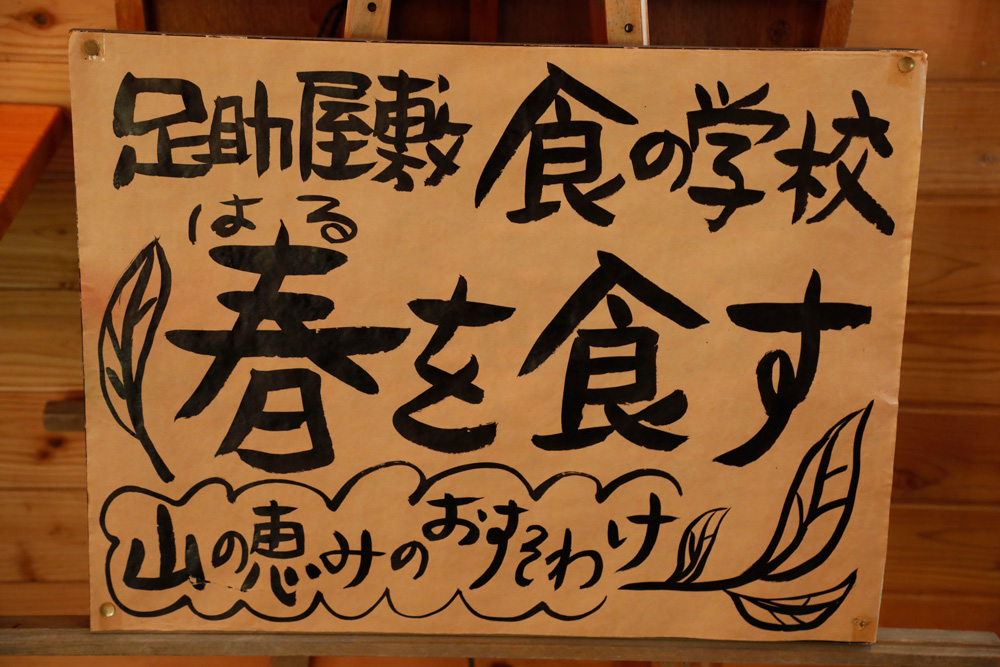 足助屋敷 食の学校
はる
春を食す
山の恵みのおすそわけ